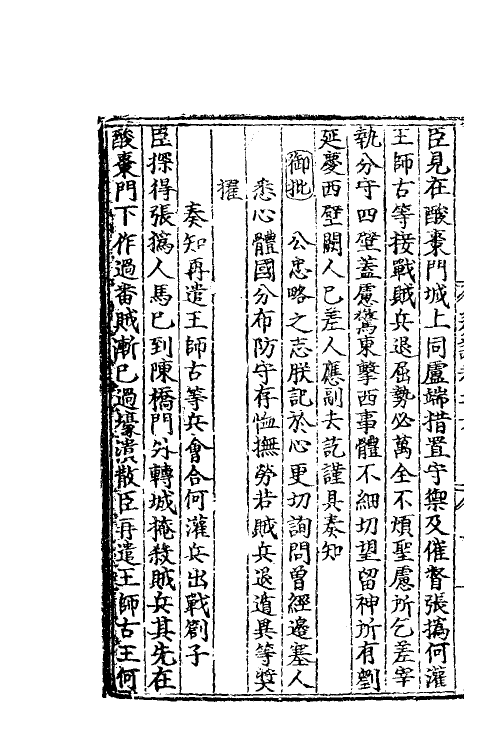 臣見在酸棗門城上同盧端措置守禦及催督張撝何灌
王師古等接戰賊兵退屈勢必萬全不煩聖慮所乞差宰
執分守四壁蓋慮驚東擊西事體不細切望留神所有劉
延慶西壁闕人已差人應副去訖謹具奏知
御批　公忠略之志朕記於心更切詢問曾經邊塞人
悉心體國分布防守存恤撫勞若賊兵退遁異等獎
擢
奏知再遣王師古等兵會合何灌兵出戰劄子
臣探得張撝人馬已到陳橋門外轉城掩殺賊兵其先在
酸棗門下作過番賊漸已過壕潰散臣再遣王師古王何